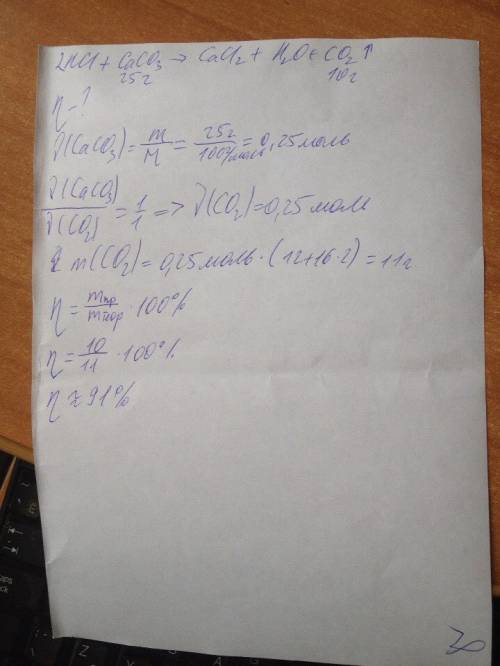 2HCl + CaCO₃ → CaCl₂ + H₂O + CO₂ ↑
25г 10г
η - ?
ν(CaCO₃) = m/M = 25г/100г/моль = 0,25 моль
ν(CaCO₃)/ν(CO₂) = 1/1 => ν(CO₂) = 0,25 моль
m(CO₂) = 0,25 моль · (12+16·2) = 11г
η = mпр/mтеор · 100%
η = 10/11 · 100%
η ≈ 91%
30